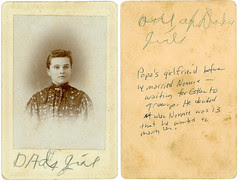 DAds Girl
Girl
Papa's girlfriend before
he married Nonnie —
waiting for Esther to
grow up. He decided
when Nonnie was 13
that he wanted to
marry her.